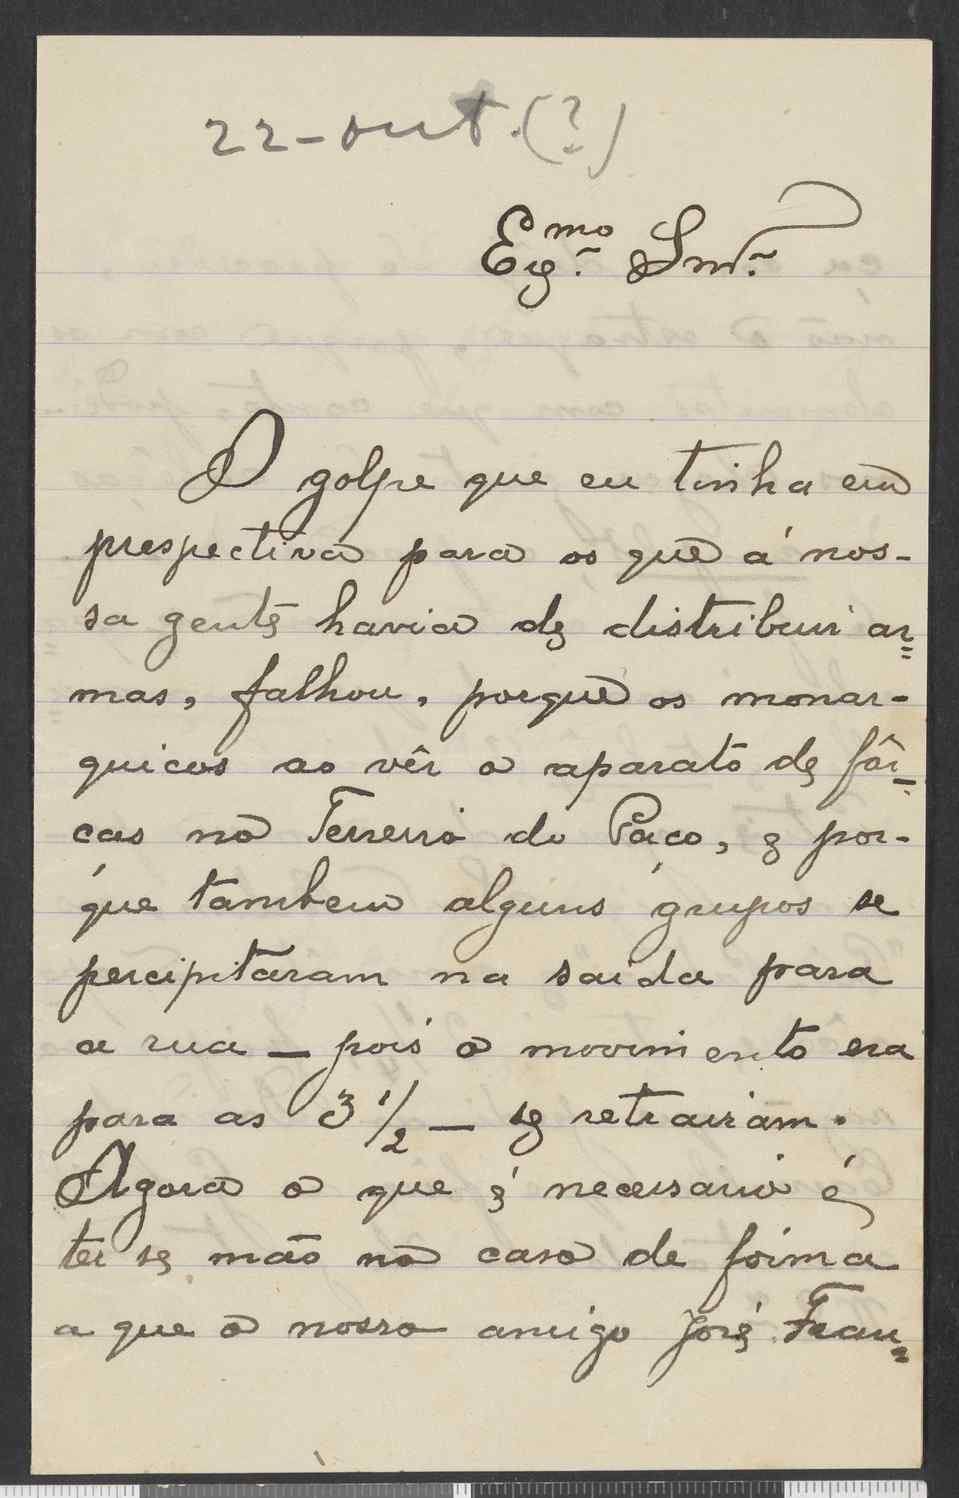 22-out.(?)
Exmo. Snr.
O golpe que eu tinha em
prespectiva para os que á nos-
sa gente havia de distribuir ar=
mas, falhou, porque os monar-
quicos ao vêr o aparato de fôr-
ças no Terreiro do Paço, e por-
que tambem alguns grupos se
percipitaram na saida para
a rua — pois o movimento era
para as 3 1/2 — se retrairam.
Agora o que é necessario é
ter se mão no caso de forma
a que o nosso amigo José Fran=